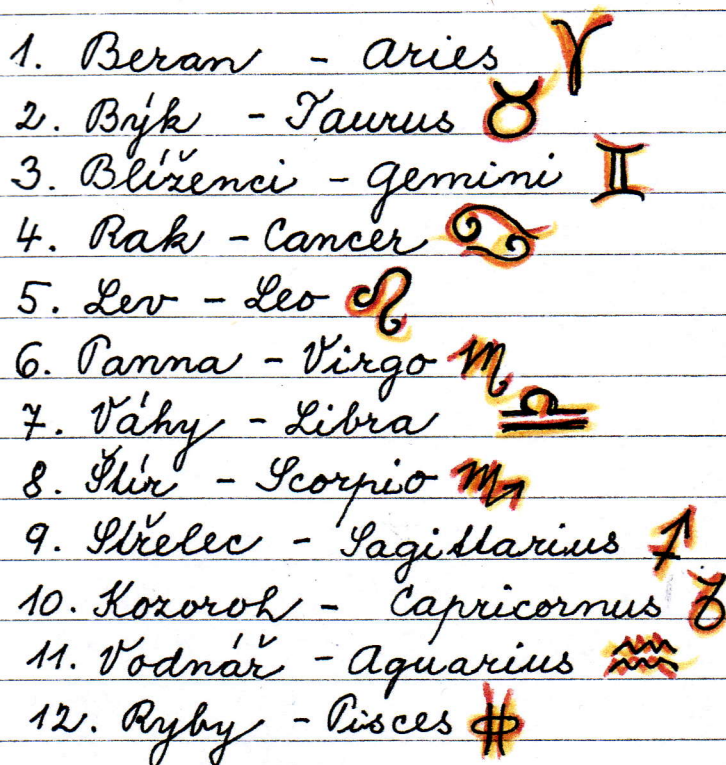 1. Beran - Aries ♈
2. Býk - Taurus ♉
3. Blíženci - Gemini ♊
4. Rak - Cancer ♋
5. Lev - Leo ♌
6. Panna - Virgo ♍
7. Váhy - Libra ♎
8. Štír - Scorpio ♏
9. Střelec - Sagittarius ♐
10. Kozoroh - Capricornus ♑
11. Vodnář - Aquarius ♒
12. Ryby - Pisces ♓